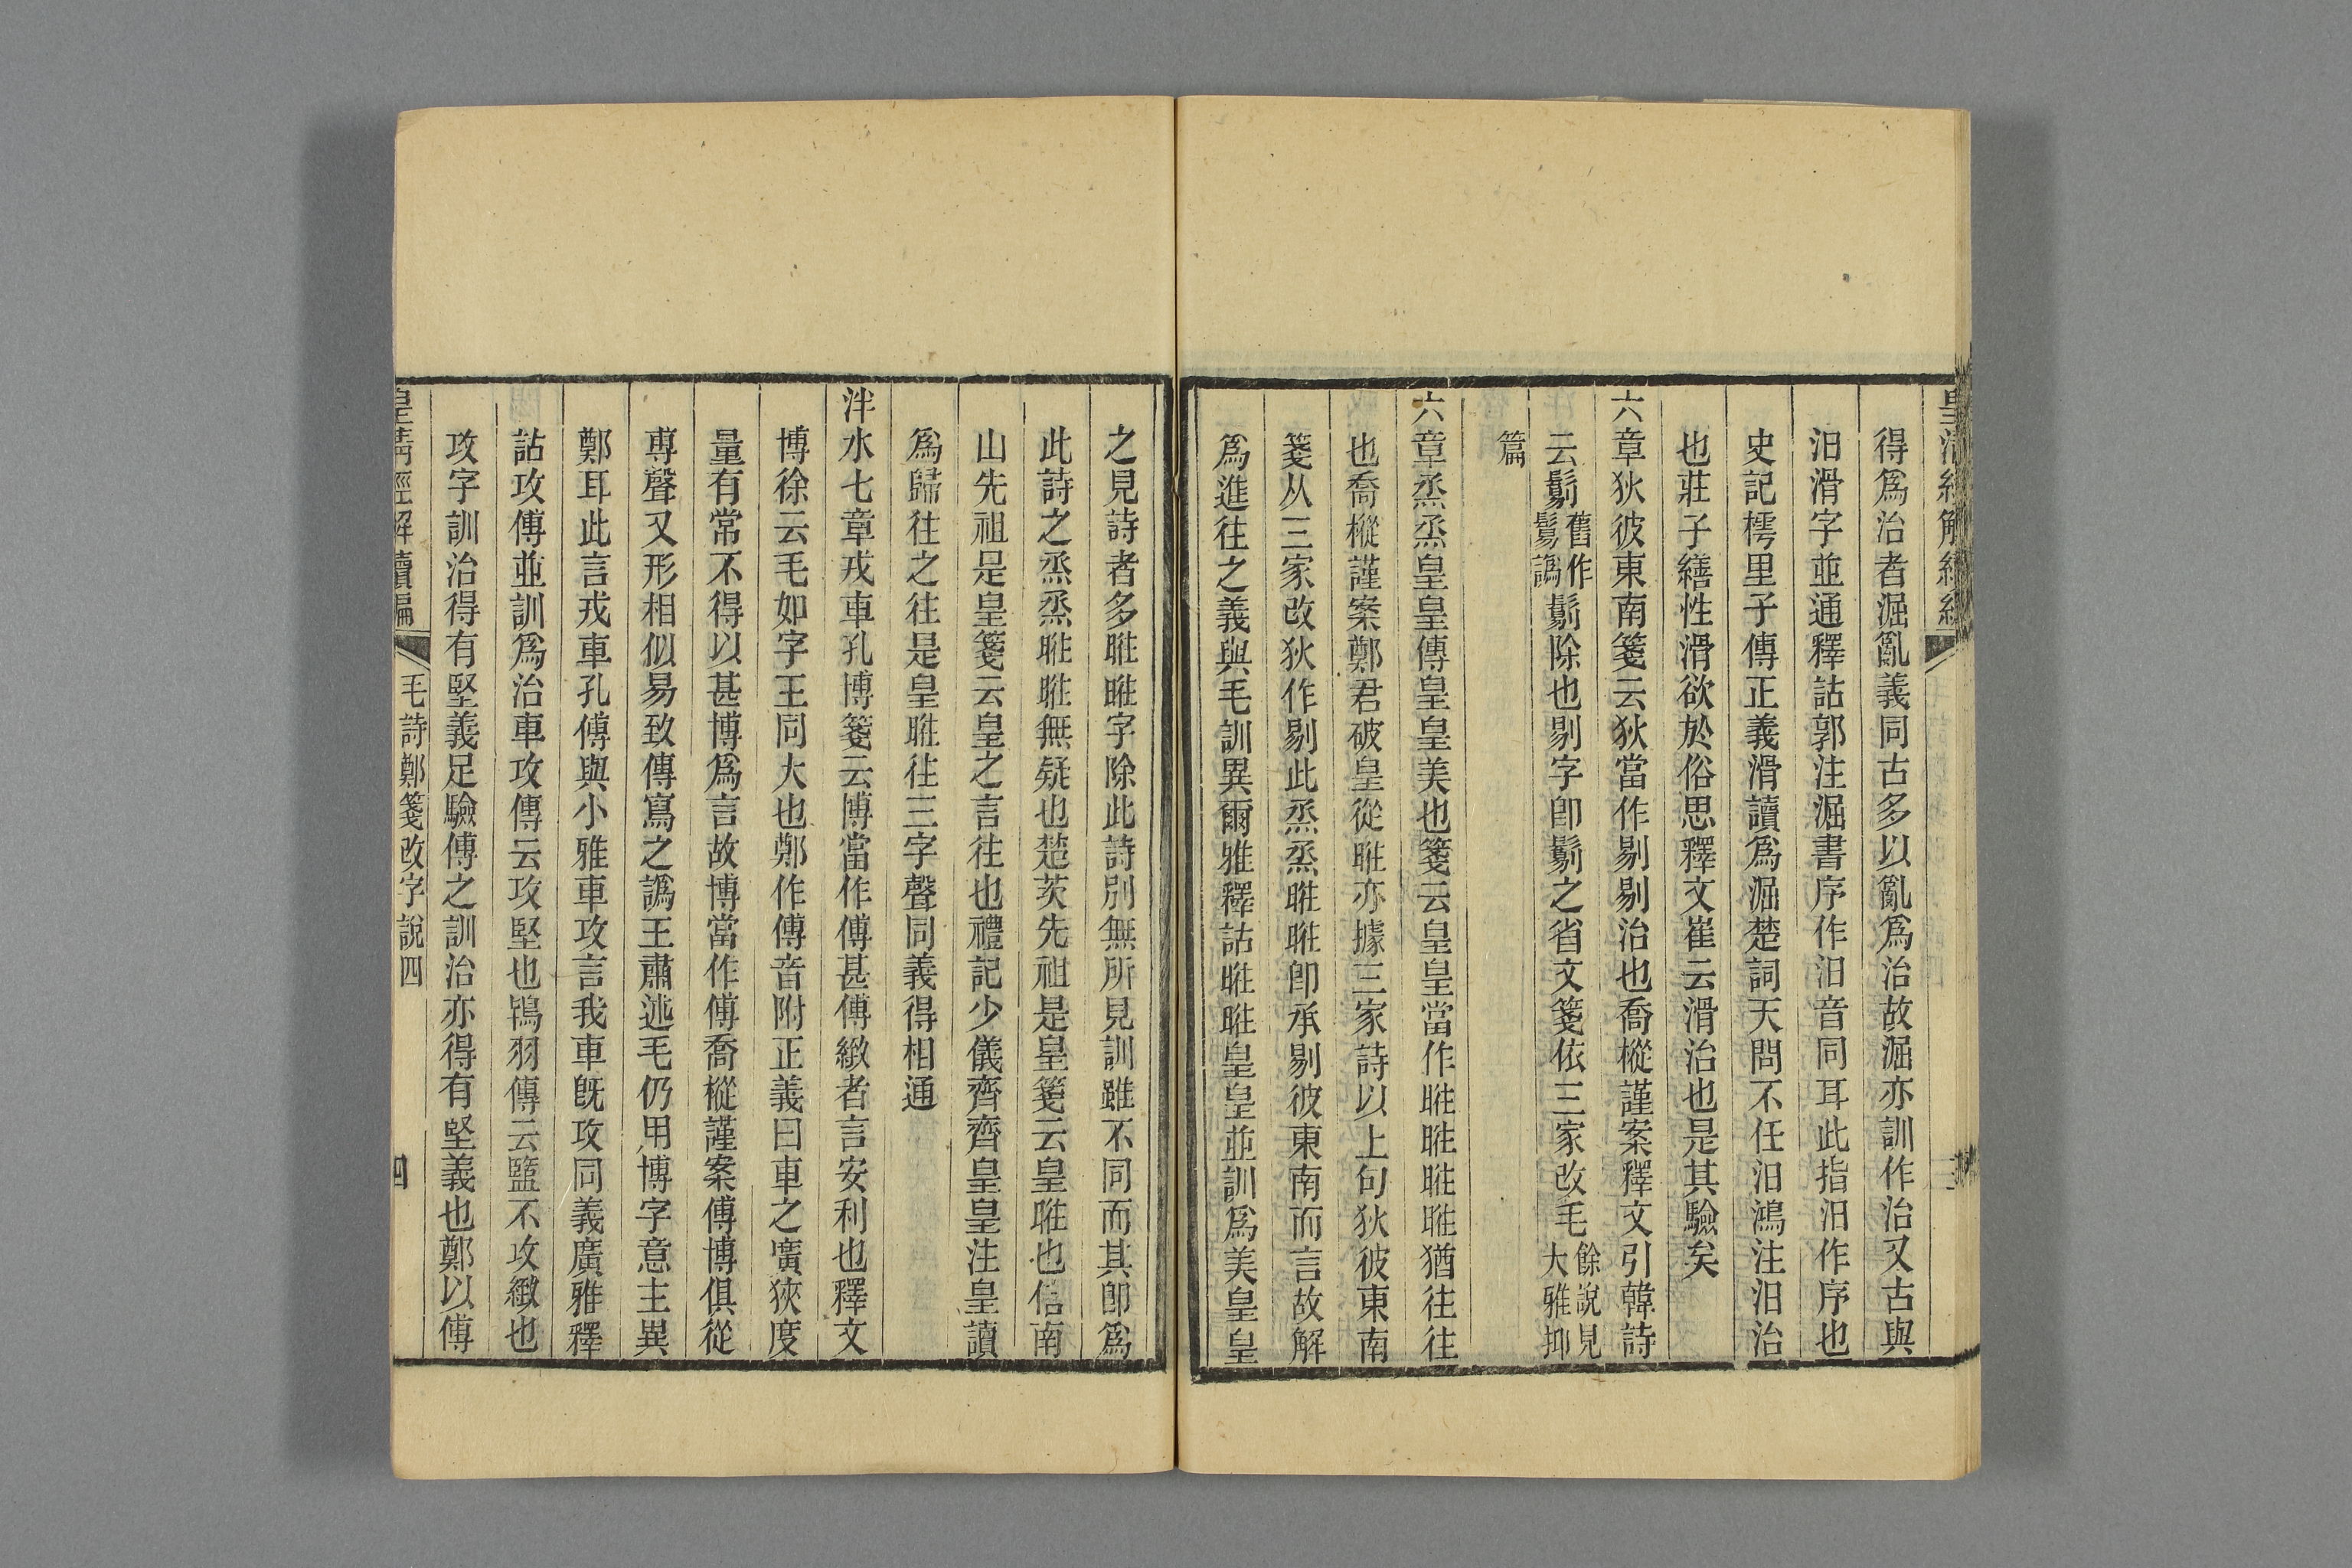 得爲治者淈亂義同古多以亂爲治故淈亦訓作治又古與
汨滑字並通釋詁郭注淈書序作汨音同耳此指汨作序也
史記樗里子傳正義滑讀爲淈楚詞天問不任汨鴻注汨治
也莊子繕性滑欲於俗思釋文崔云滑治也是其驗矣
六章狄彼東南箋云狄當作剔剔治也喬樅謹案釋文引韓詩
云鬄舊作鬄譌鬄除也剔字卽鬄之省文箋依三家改毛餘說見大雅抑
篇
六章烝烝皇皇傳皇皇美也箋云皇皇當作暀暀暀暀猶往往
也喬樅謹案鄭君破皇從暀亦據三家詩以上句狄彼東南
箋从三家改狄作剔此烝烝暀暀卽承剔彼東南而言故解
爲進往之義與毛訓異爾雅釋詁暀暀皇皇並訓爲美皇皇
之見詩者多暀暀字除此詩別無所見訓雖不同而其卽爲
此詩之烝烝暀暀無疑也楚茨先祖是皇箋云皇暀也信南
山先祖是皇箋云皇之言往也禮記少儀齊齊皇皇注皇讀
爲歸往之往是皇暀往三字聲同義得相通
泮水七章戎車孔博箋云博當作傅甚傅緻者言安利也釋文
博徐云毛如字王同大也鄭作傅音附正義曰車之廣狹度
量有常不得以甚博爲言故博當作傅喬樅謹案傅博俱從
尃聲又形相似易致傳寫之譌王肅述毛仍用博字意主異
鄭耳此言戎車孔傅與小雅車攻言我車旣攻同義廣雅釋
詁攻傅並訓爲治車攻傳云攻堅也鴇羽傳云盬不攻緻也
攻字訓治得有堅義足驗傅之訓治亦得有堅義也鄭以傅
皇淸經解續編
毛詩鄭箋改字說四
四